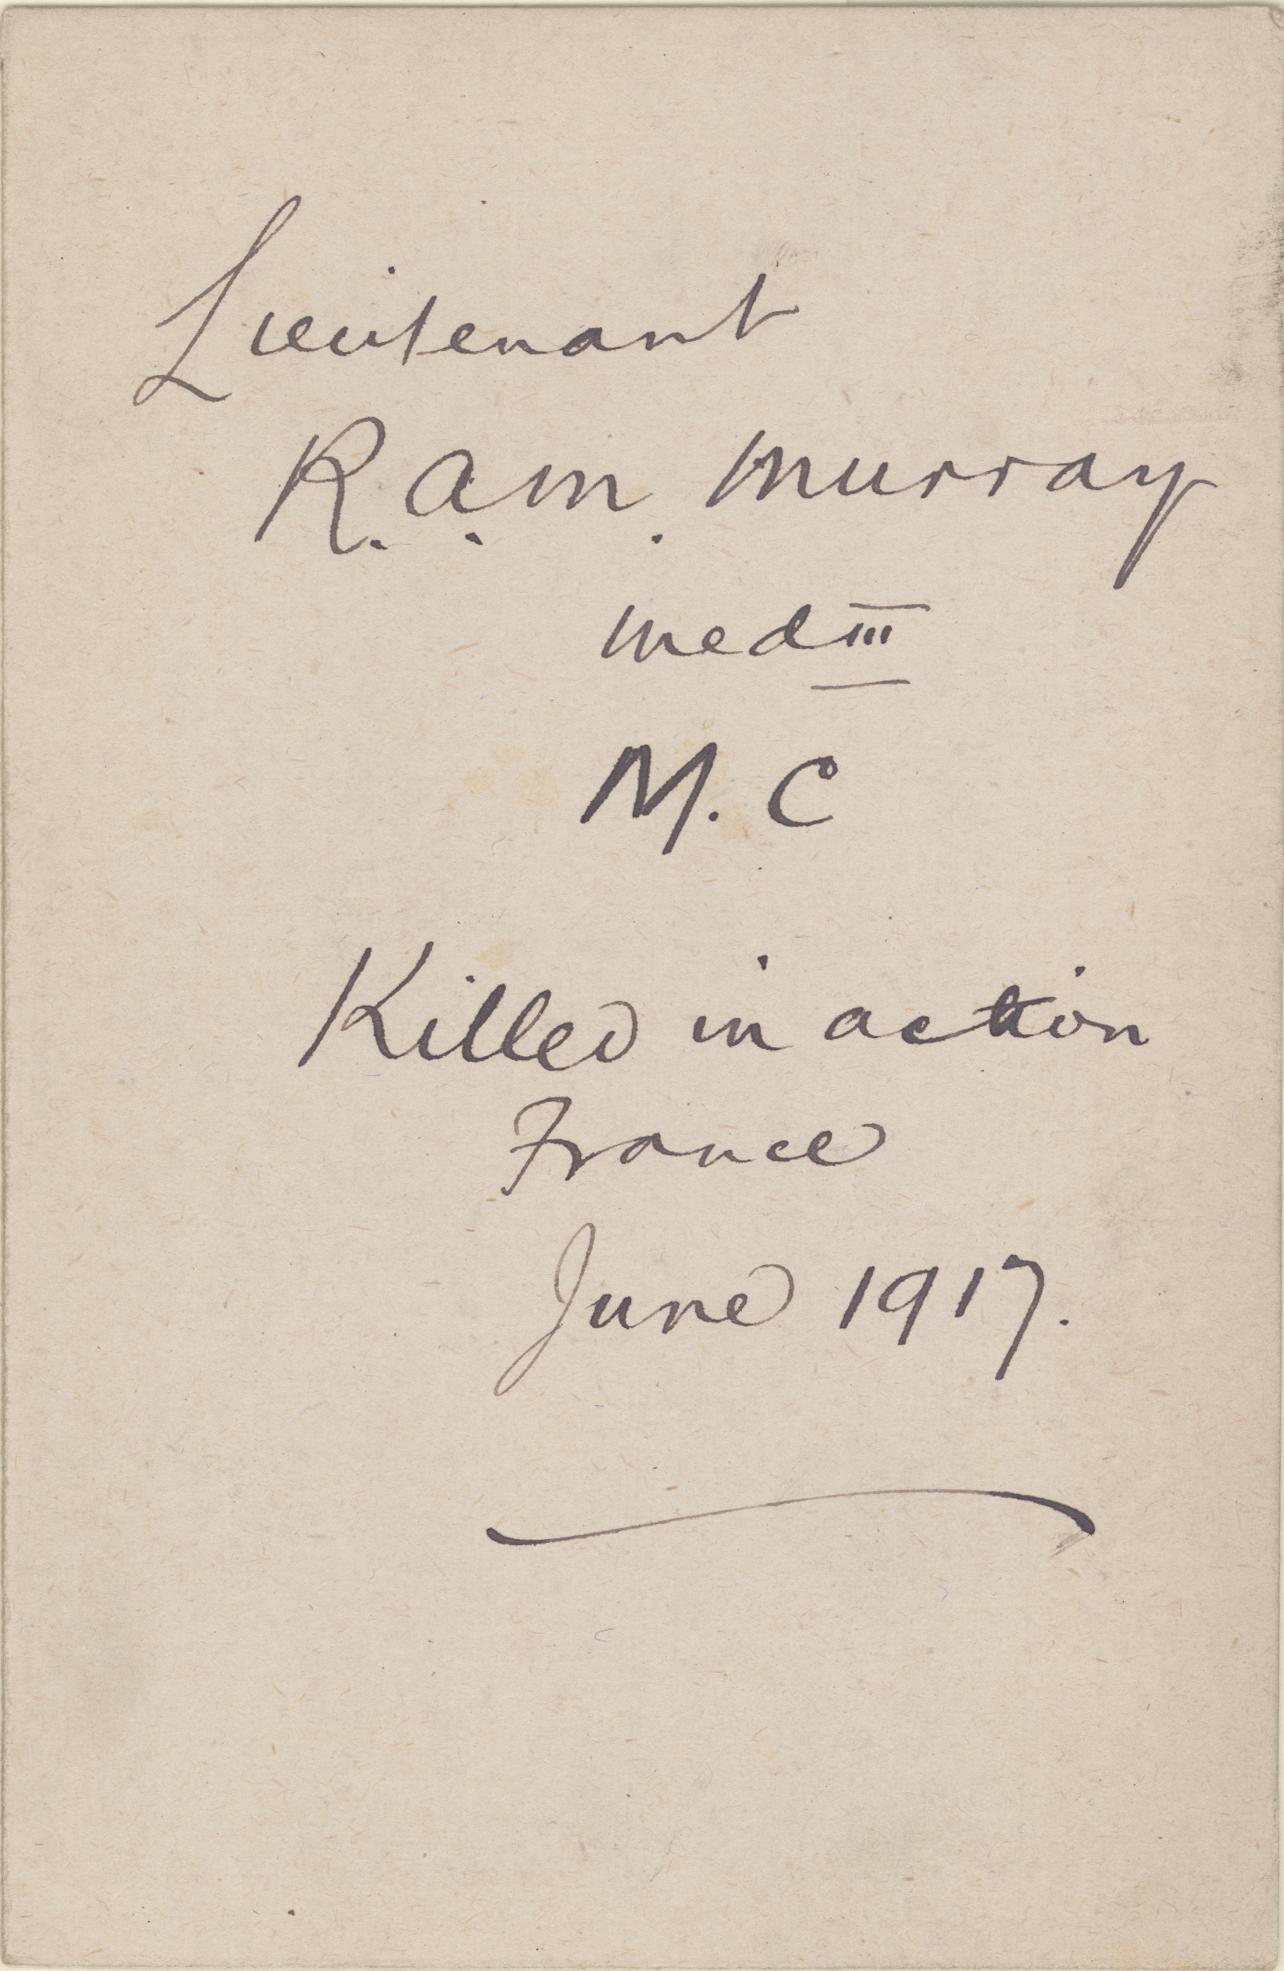 Lieutenant
R.A.M. Murray
Med III
M.C
Killed in action
France
June 1917.